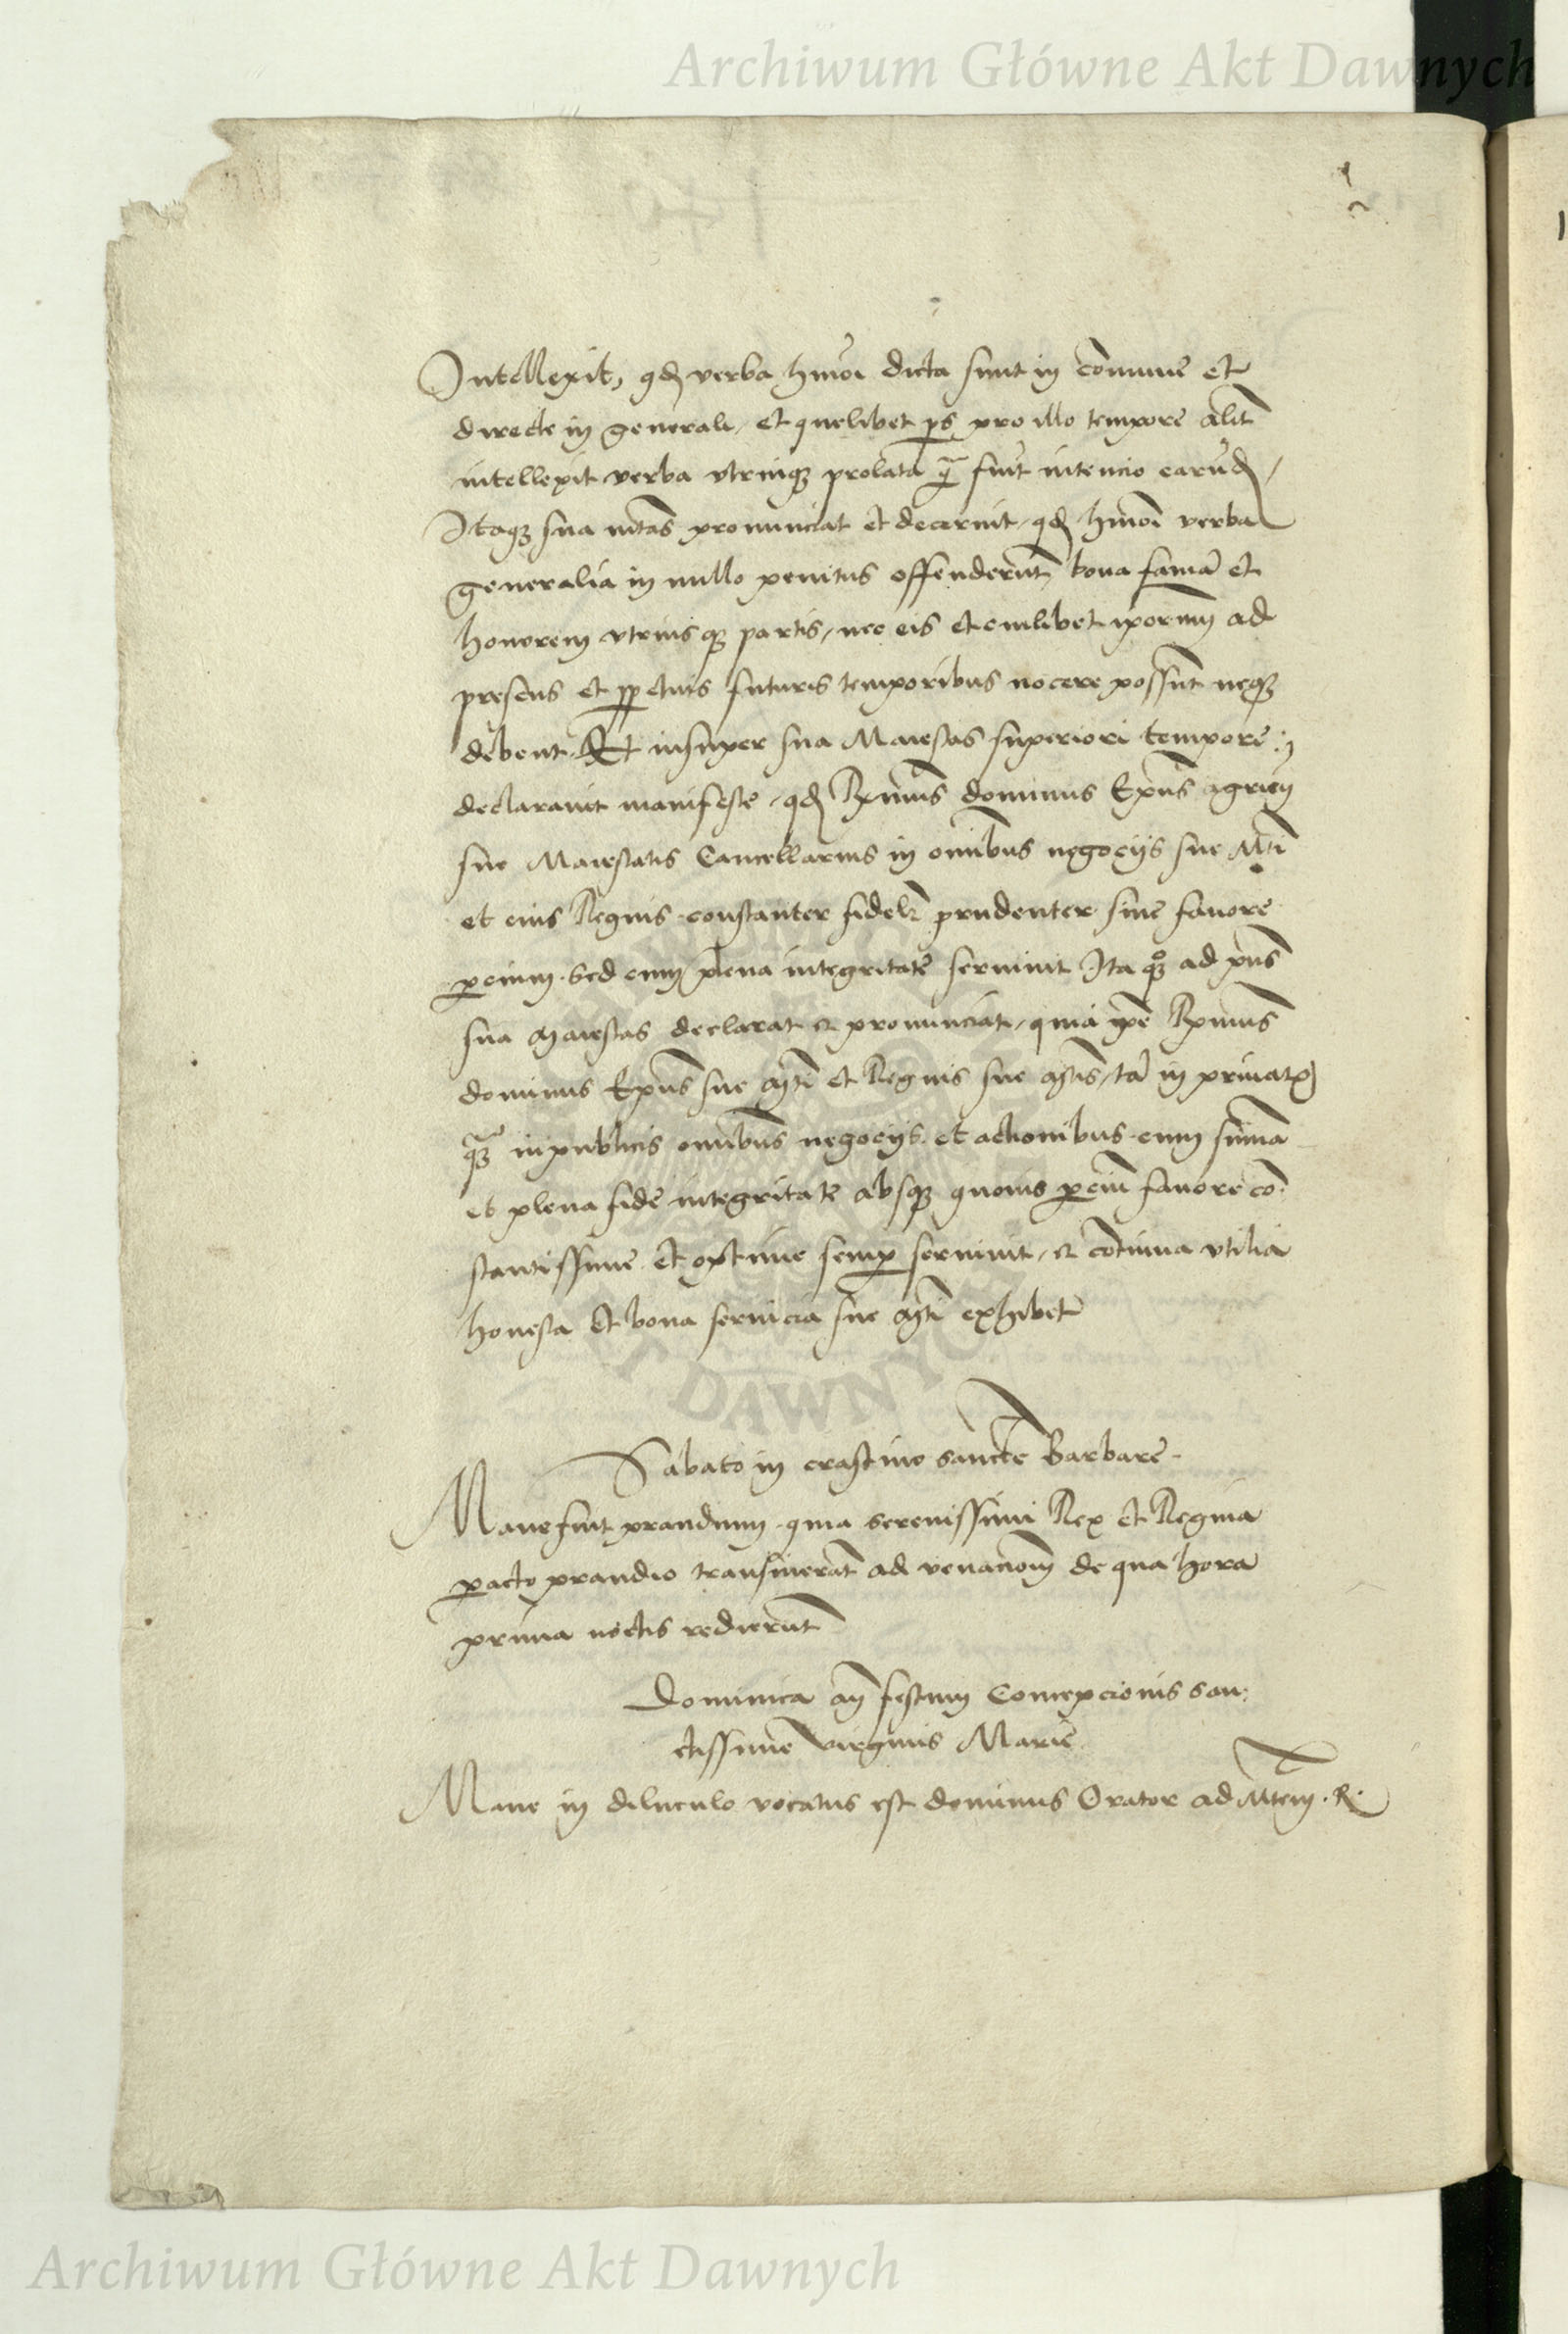 Archiwum Główne Akt Dawnych
Intellexit, qd verba hmoi dicta sunt in comune et
directe in generali, et quelibet ps pro illo tempore alit
intellexit verba vtrinqz prolata q fuit intencio earud,
Itaqz sua mtas pronunciat et decernit, qd hmoi verba
generalia in nullo penitus offenderut bona fama et
honorem vtriusqz partis, nec eis et cuilibet iporum ad
presens et ppetuis futuris temporibus nocere possut neqz
debent. Et insuper sua Maiestas superiori tempore
declarauit manifeste, qd Rxmus dominus Epus Agrien
sue Maiestatis Cancellarius in omibus negocijs sue Mti
et eius Regnis constanter fidelr prudenter sine fauore
pcium. Sed cum plena integritate seruiuit Ita qz ad pns
sua Maiestas declarat et pronunciat, quia ipe Rxmus
dominus Epus sue Mti et Regnis sue Mtis, ta in priuatis
qz in publicis omibus negocijs et actionibus cum suma
et plena fide integritate absqz quouis pcium fauore co
stantissime et optime semp seruiuit, et cotinua vtilia
honesta et bona seruicia sue Mti exhibet
DAWNYCH
Sabato in crastino sancte Barbare.
Mane fuit prandium quia serenissimi Rex et Regina
pacto prandio transiuerat ad venacoem de qua hora
prima noctis redierut
Dominica an festum Concepcionis san:
ctissime virginis Marie
Mane in diluculo vocatus est dominus Orator ad Mtem. R.
Archiwum Główne Akt Dawnych